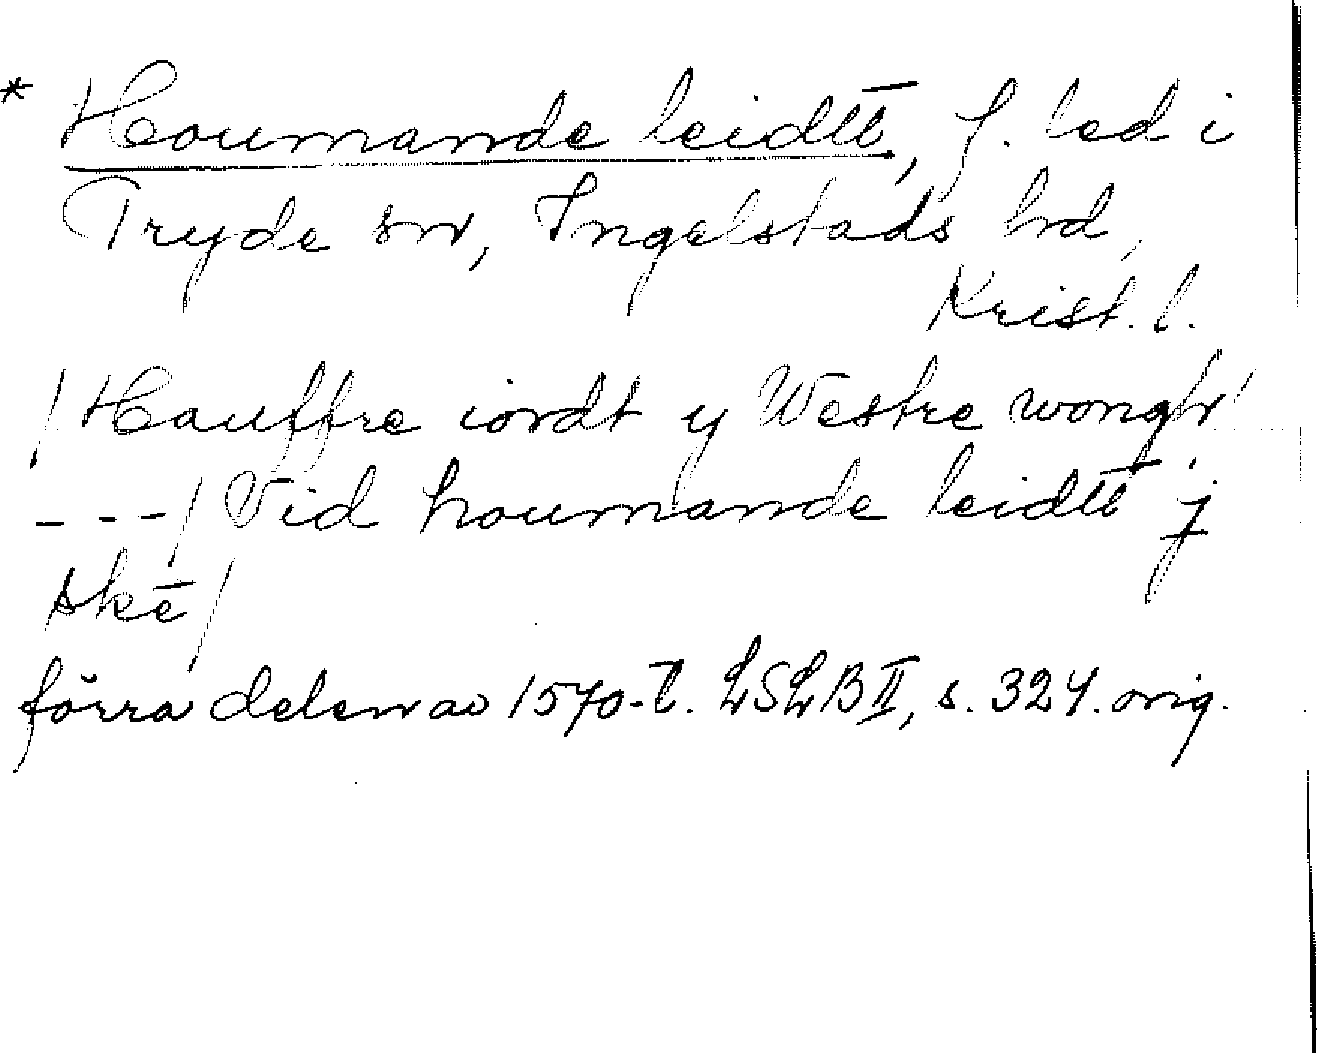 * Houmande leidtt, f. led i
Tryde sn, Ingelstads hd,
Krist. l.
/Hauffre iordt y Westre wongh/
---/Vid houmande leidtt j
skē/
förra delen av 1570-t. LSLB II, s. 324. orig.